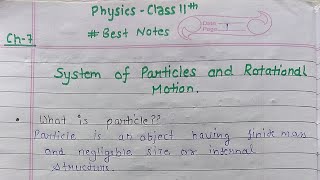 Physics - Class 11th
# Best Notes
Date
Page 1
Ch-7
System of Particles and Rotational
Motion.
• What is particle??
Particle is an object having finite mass
and negligible size or internal
structure.